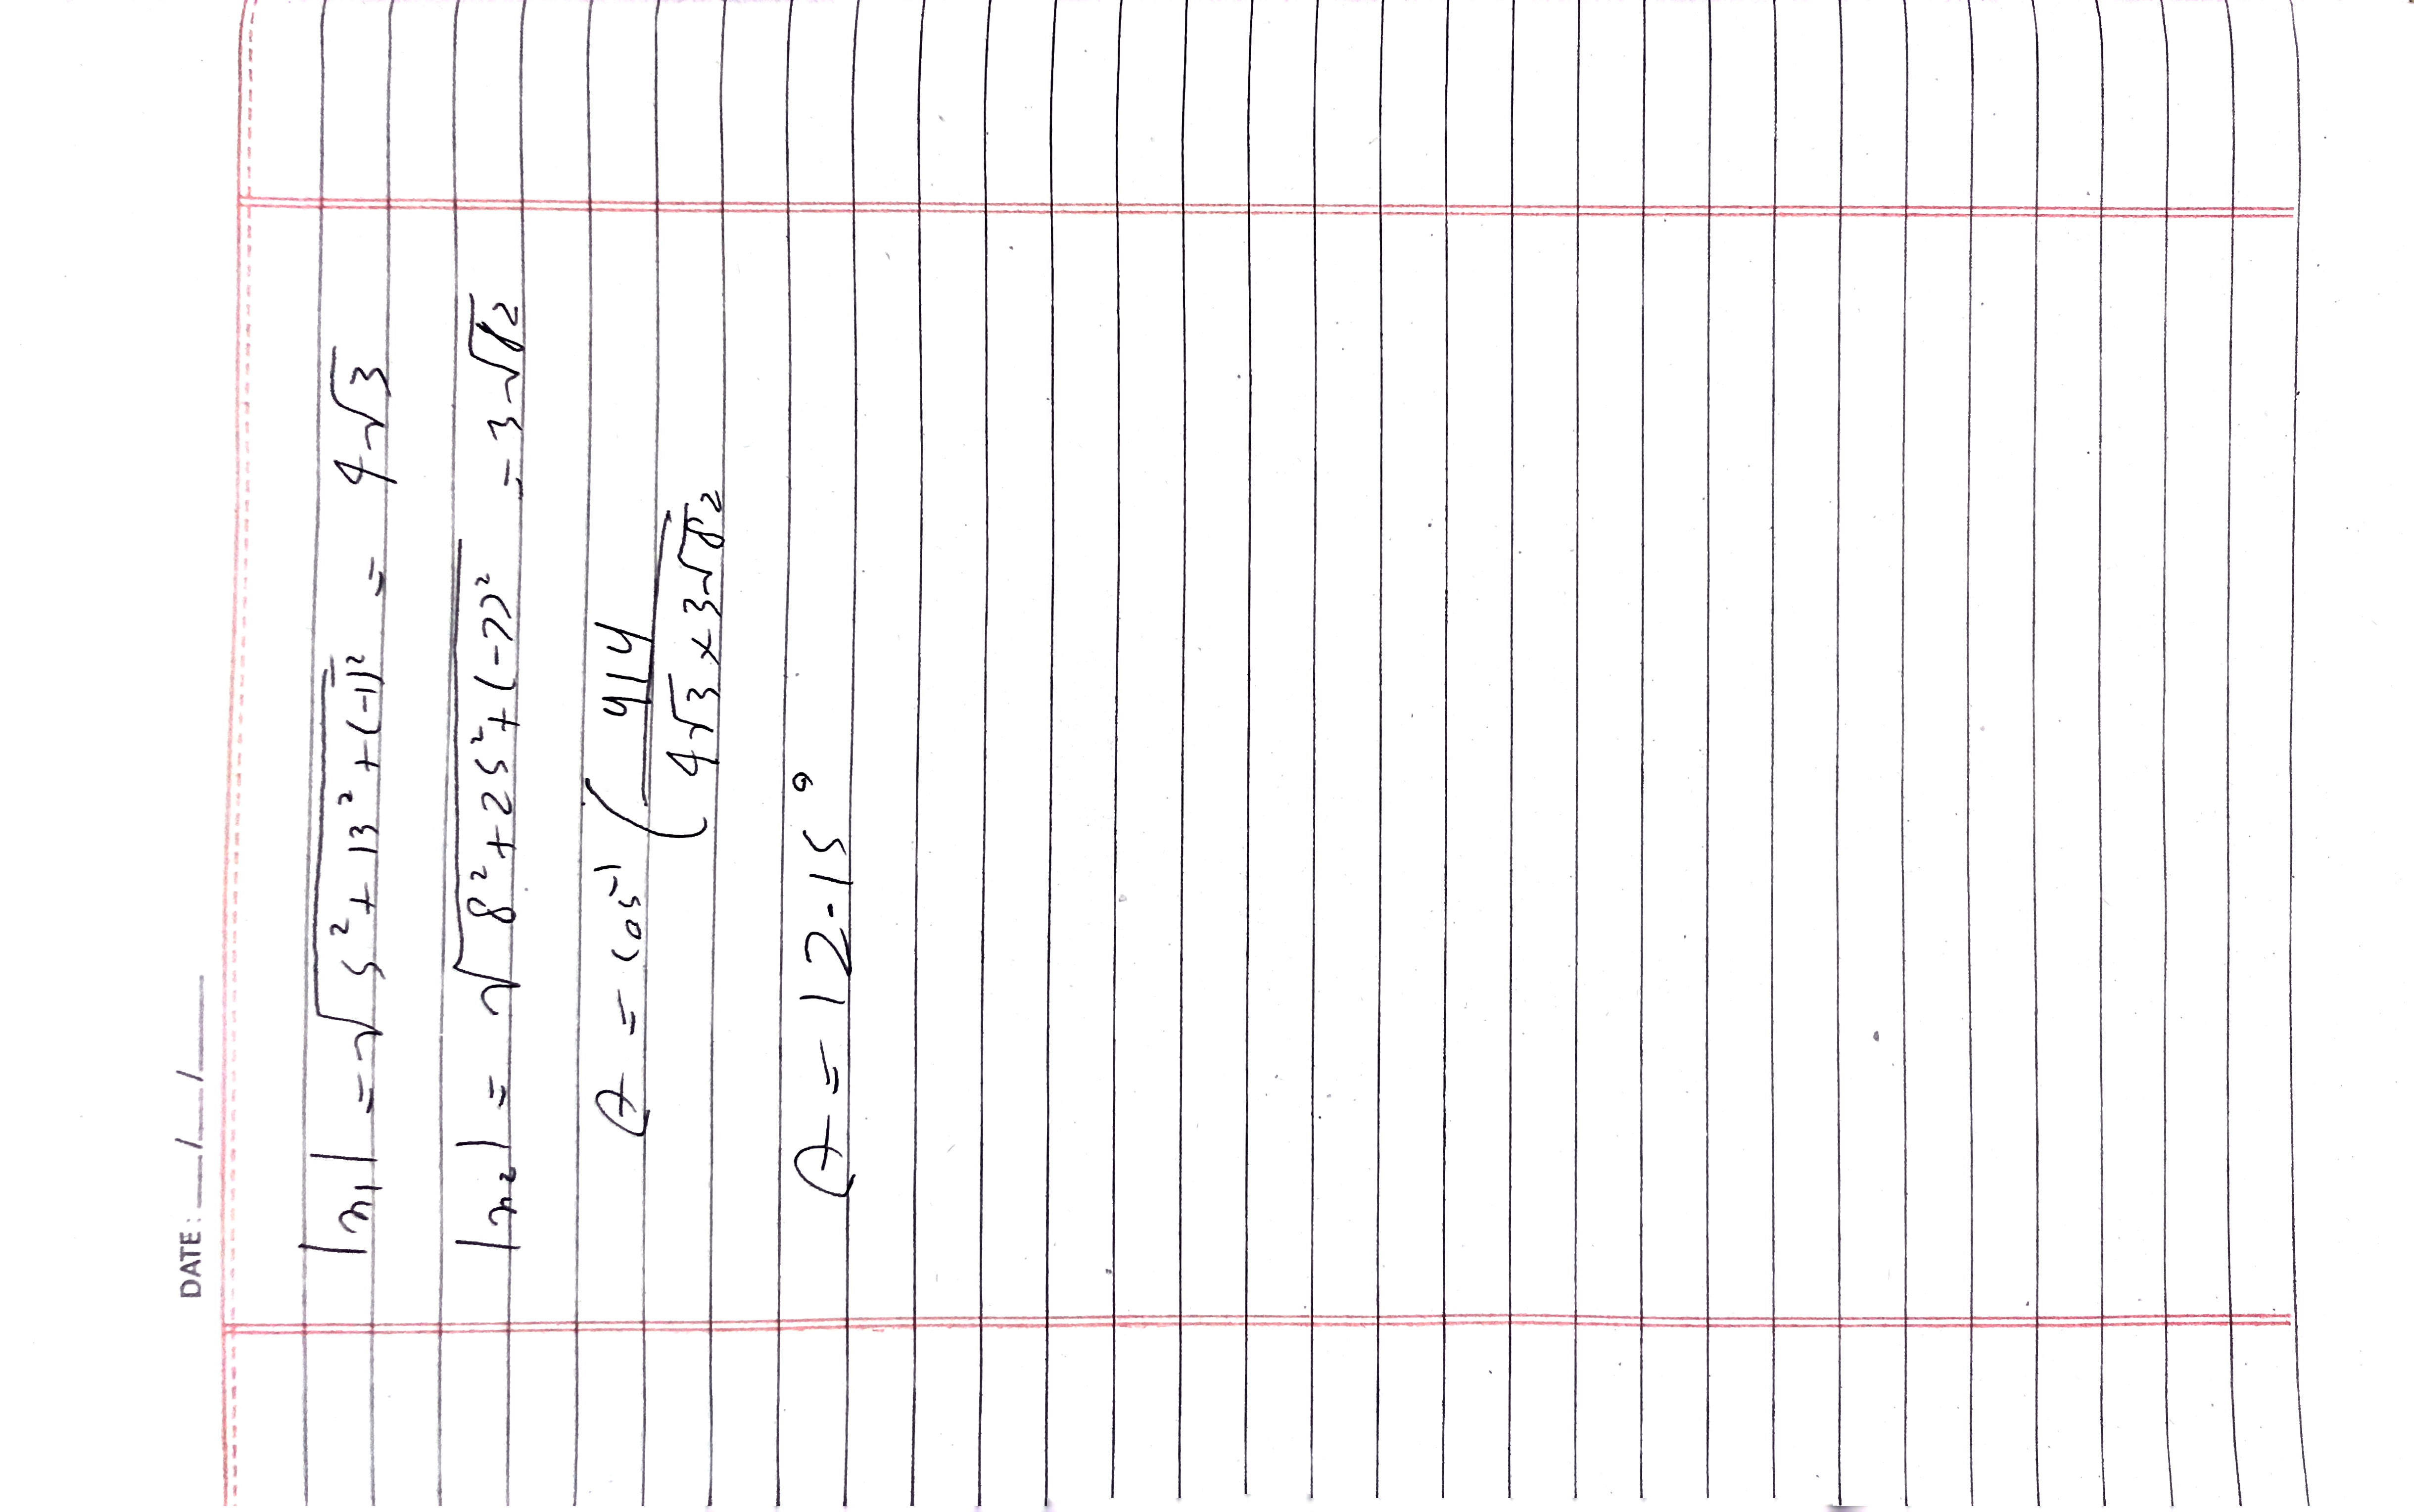 DATE: __/__/__
|n₁| = √5² + 13² + (-1)² = 4√3
|n₂| = √8² + 25² + (-7)² = 3√82
θ = cos⁻¹ ( 414 / 4√3 × 3√82
θ = 12.15°